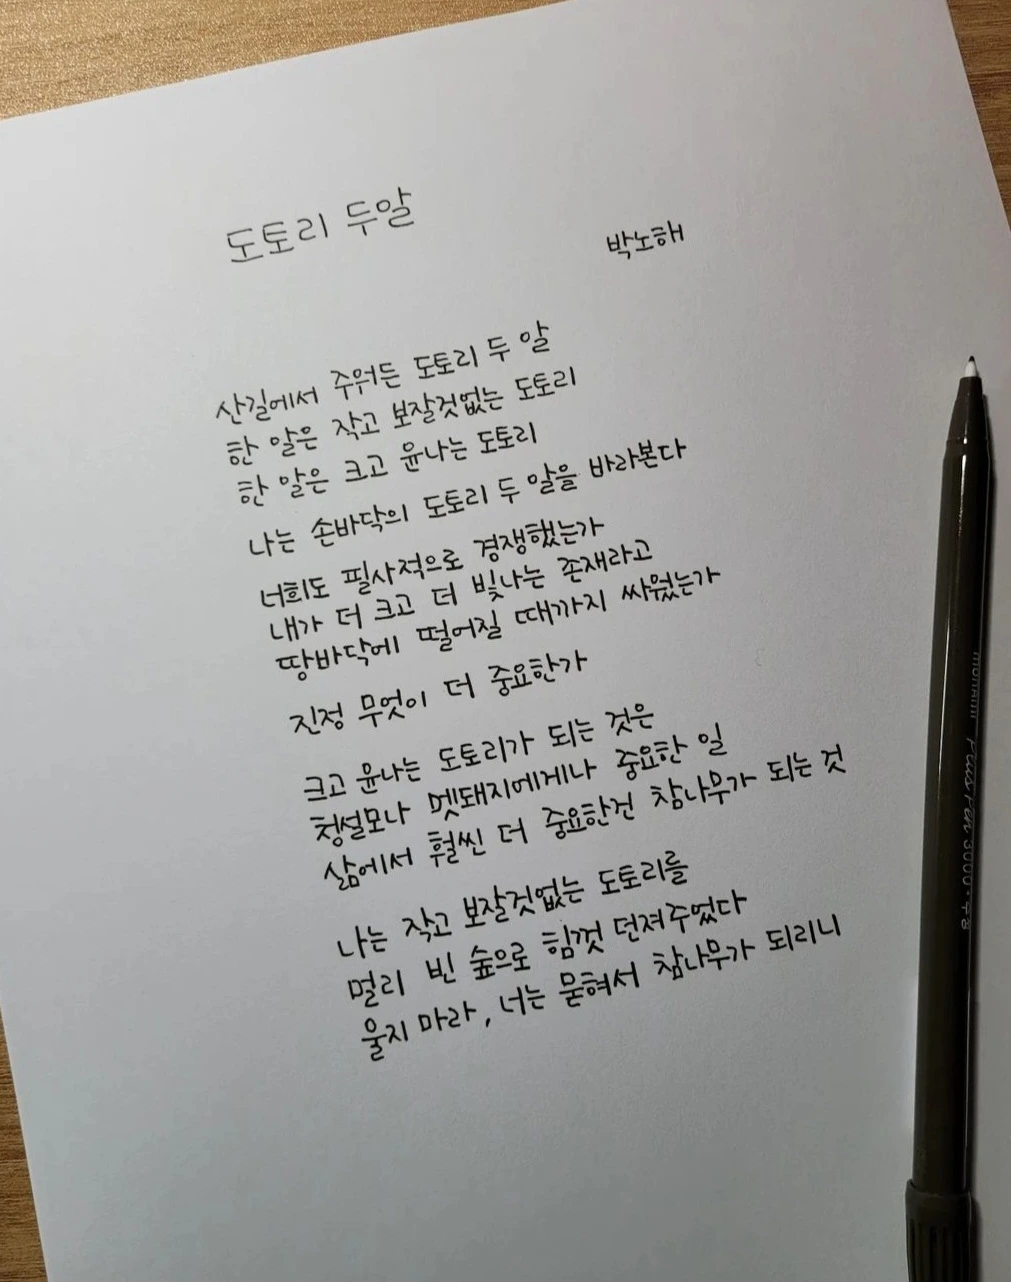 도토리 두알
박노해
산길에서 주워든 도토리 두 알
한 알은 작고 보잘것없는 도토리
한 알은 크고 윤나는 도토리
나는 손바닥의 도토리 두 알을 바라본다
너희도 필사적으로 경쟁했는가
내가 더 크고 더 빛나는 존재라고
땅바닥에 떨어질 때까지 싸웠는가
진정 무엇이 더 중요한가
크고 윤나는 도토리가 되는 것은
청설모나 멧돼지에게나 중요한 일
삶에서 훨씬 더 중요한건 참나무가 되는 것
나는 작고 보잘것없는 도토리를
멀리 빈 숲으로 힘껏 던져주었다
울지 마라, 너는 묻혀서 참나무가 되리니
monami Plus Pen 3000